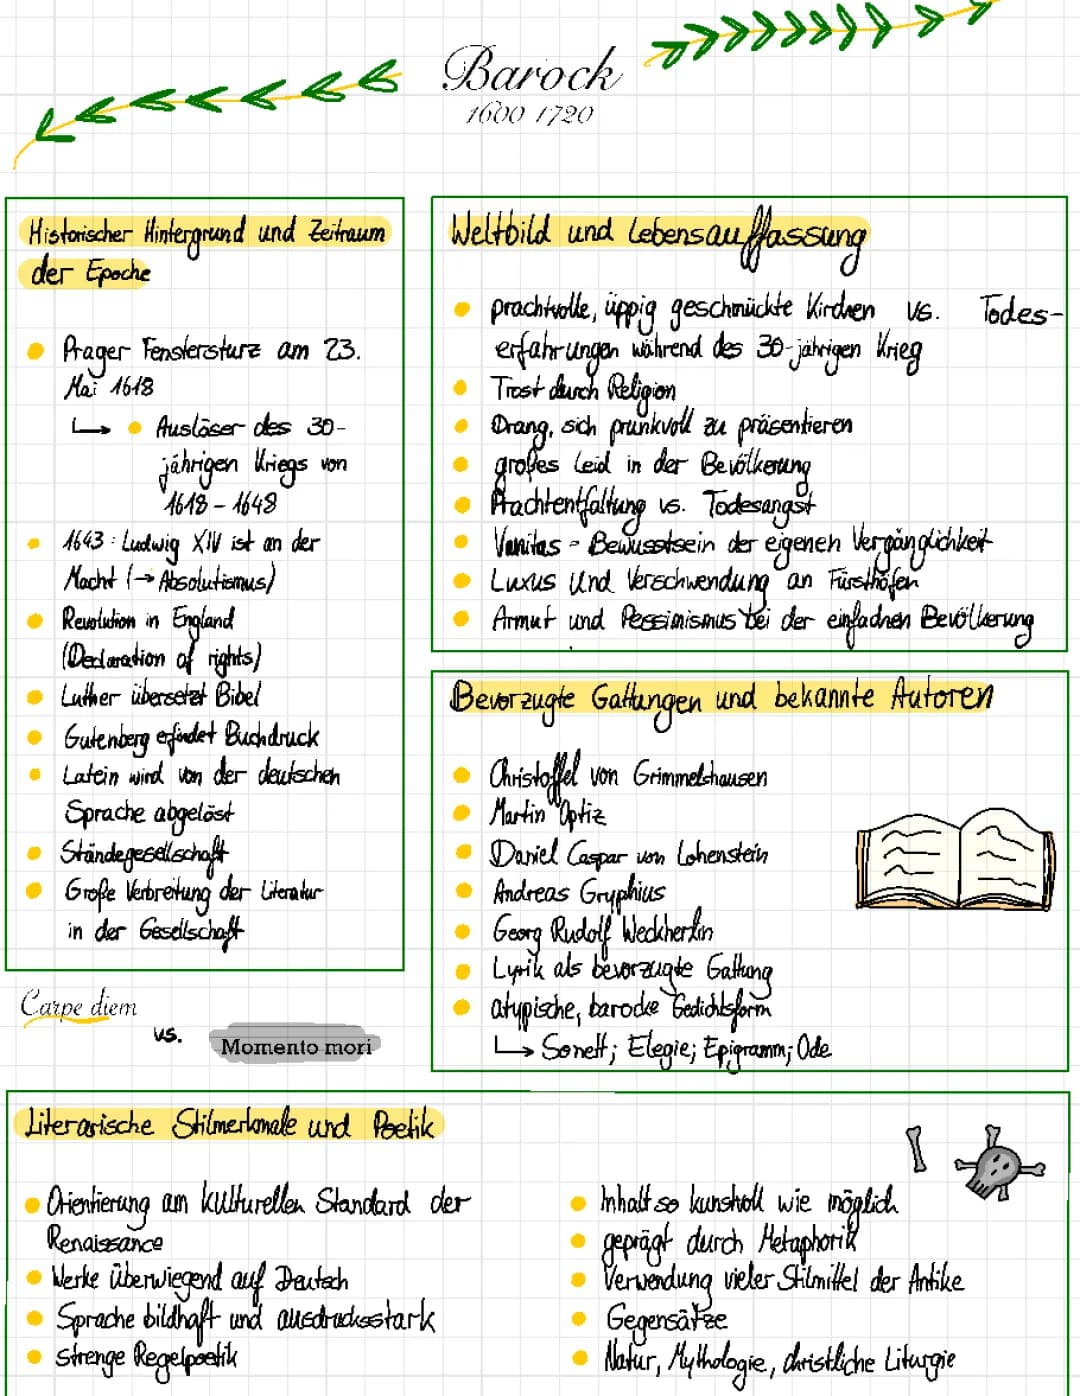 Barock
1600 1720
Historischer Hintergrund und Zeitraum
der Epoche
Prager Fenstersturz am 23.
Mai 1618
↳ • Auslöser des 30-
jährigen Kriegs von
1618 – 1648
1643: Ludwig XIV ist an der
Macht (→ Absolutismus)
Revolution in England
(Declaration of rights)
Luther übersetzt Bibel
Gutenberg erfindet Buchdruck
Latein wird von der deutschen
Sprache abgelöst
Ständegesellschaft
Große Verbreitung der Literatur
in der Gesellschaft
Carpe diem
vs.
Momento mori
Weltbild und Lebensauffassung
prachtvolle, üppig geschmückte Kirchen vs. Todes-
erfahrungen während des 30-jährigen Krieg
Trost durch Religion
Drang, sich prunkvoll zu präsentieren
großes Leid in der Bevölkerung
Prachtentfaltung vs. Todesangst
Vanitas - Bewusstsein der eigenen Vergänglichkeit
Luxus und Verschwendung an Fürsthöfen
Armut und Pessimismus bei der einfachen Bevölkerung
Bevorzugte Gattungen und bekannte Autoren
Christoffel von Grimmelshausen
Martin Optiz
Daniel Caspar von Lohenstein
Andreas Gryphius
Georg Rudolf Weckherlin
Lyrik als bevorzugte Gattung
atypische, barocke Gedichtsform
↳ Sonett; Elegie; Epigramm; Ode
Literarische Stilmerkmale und Poetik
Orientierung am kulturellen Standard der
Renaissance
Werke überwiegend auf Deutsch
Sprache bildhaft und ausdrucksstark
strenge Regelpoetik
Inhalt so kunstvoll wie möglich
geprägt durch Metaphorik
Verwendung vieler Stilmittel der Antike
Gegensätze
Natur, Mythologie, christliche Liturgie